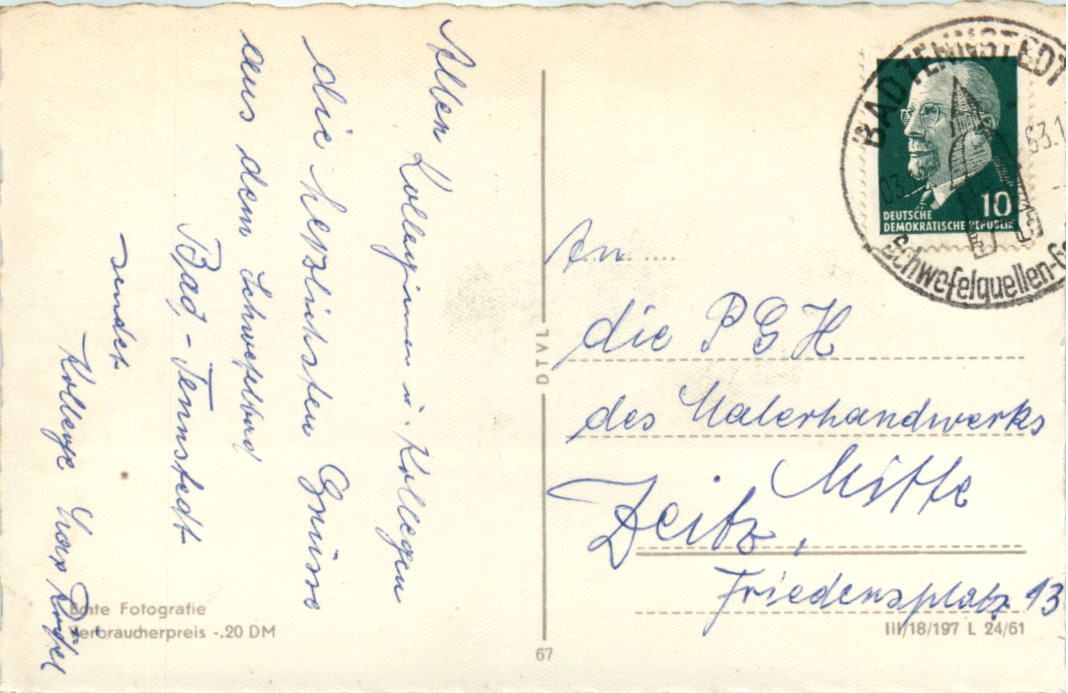 Allen Kolleginnen u. Kollegen
die herzlichsten Grüsse
aus dem Schwefelbad
Bad-Tennstedt
sendet
Kollege Max
BAD TENNSTEDT
63.1
Schwefelquellen-
10
DEUTSCHE
DEMOKRATISCHE REPUBLIK
An
die PGH
des Malerhandwerks
Mitte
Zeitz,
Friedensplatz 13
DTVL
Echte Fotografie
Verbraucherpreis -.20 DM
67
III/18/197 L 24/61